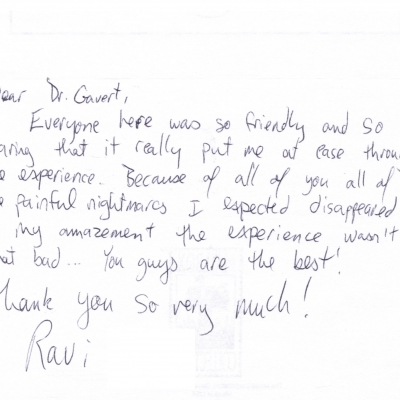 ear Dr. Gavert,
Everyone here was so friendly and so
aring that it really put me at ease throu
e experience. Because of all of you all of
e painful nightmares I expected disappeared
my amazement the experience wasn't
at bad... You guys are the best!
hank you so very much!
Ravi